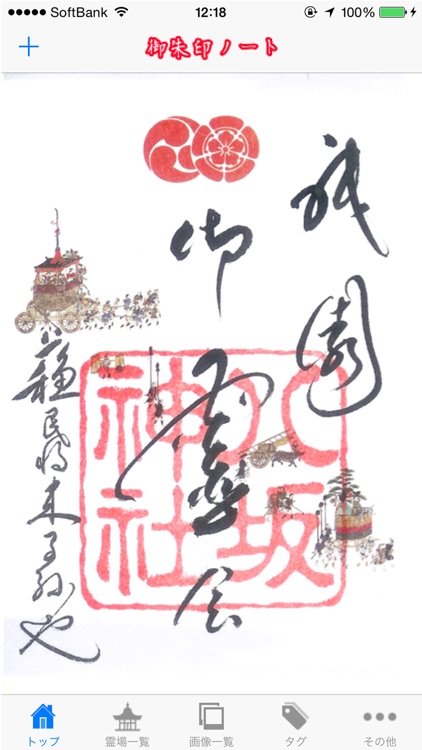 SoftBank 12:18 100%
御朱印ノート
祇園
御靈会
蘇民将来子孫也
八坂神社
トップ 霊場一覧 画像一覧 タグ その他